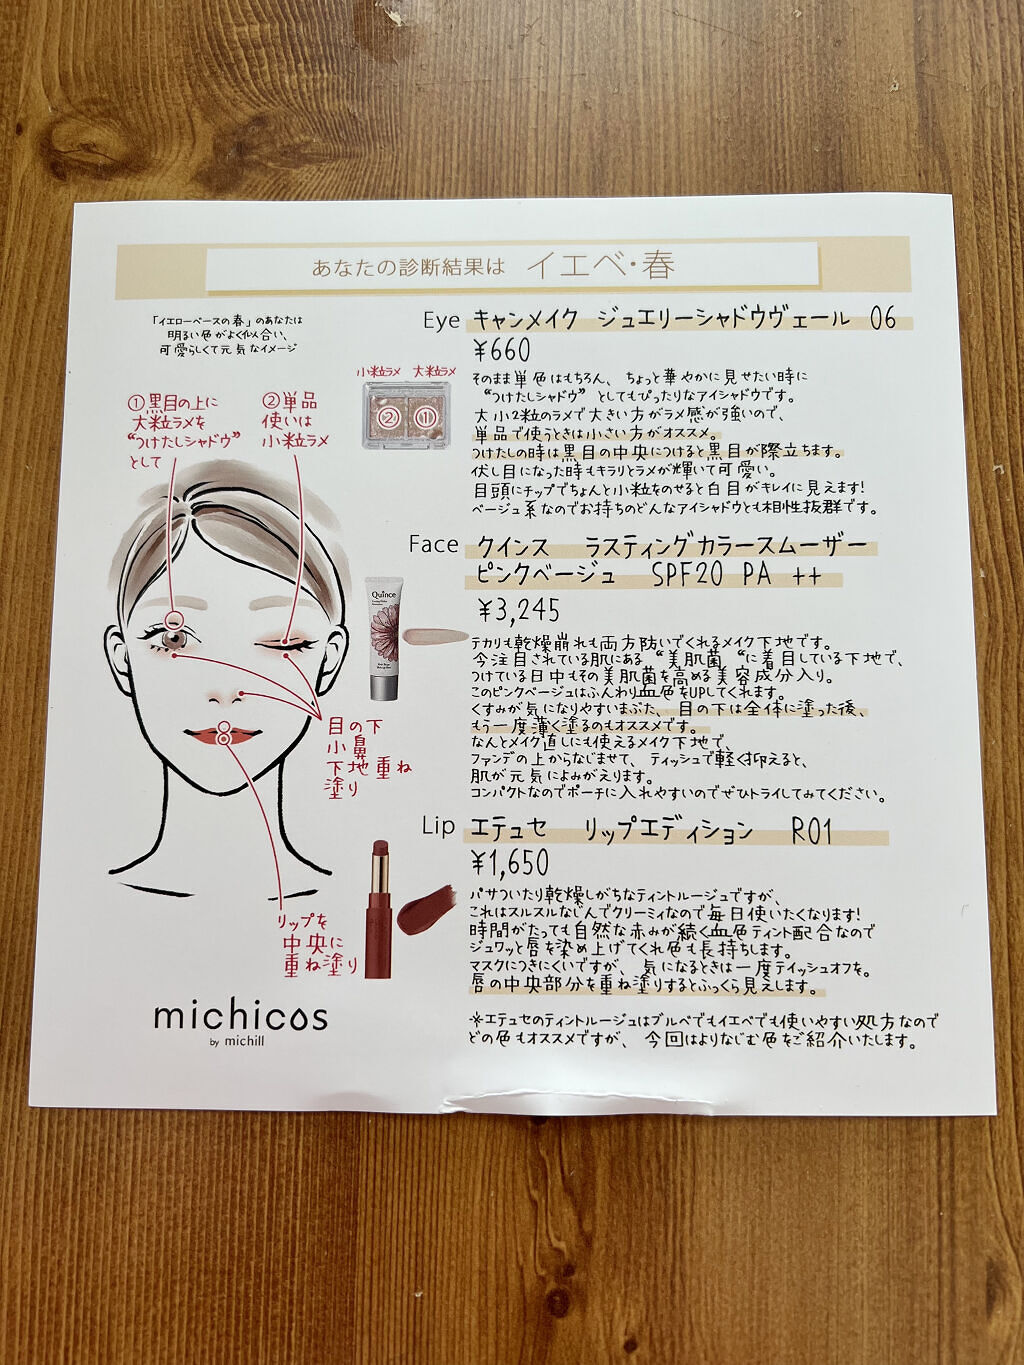 あなたの診断結果は イエベ・春
「イエローベースの春」のあなたは
明るい色がよく似合い、
可愛らしくて元気なイメージ
①黒目の上に
大粒ラメを
“つけたしシャドウ”
として
②単品
使いは
小粒ラメ
小粒ラメ 大粒ラメ
② ①
目の下
小鼻
下地重ね
塗り
リップを
中央に
重ね塗り
Quince
michicos
by michill
Eye キャンメイク ジュエリーシャドウヴェール 06
¥660
そのまま単色はもちろん、ちょっと華やかに見せたい時に
“つけたしシャドウ”としてもぴったりなアイシャドウです。
大小2粒のラメで大きい方がラメ感が強いので、
単品で使うときは小さい方がオススメ。
つけたしの時は黒目の中央につけると黒目が際立ちます。
伏し目になった時もキラリとラメが輝いて可愛い。
目頭にチップでちょんと小粒をのせると白目がキレイに見えます!
ベージュ系なのでお持ちのどんなアイシャドウとも相性抜群です。
Face クインス ラスティングカラースムーザー
ピンクベージュ SPF20 PA ++
¥3,245
テカリも乾燥崩れも両方防いでくれるメイク下地です。
今注目されている肌にある“美肌菌“に着目している下地で、
つけている日中もその美肌菌を高める美容成分入り。
このピンクベージュはふんわり血色をUPしてくれます。
くすみが気になりやすいまぶた、目の下は全体に塗った後、
もう一度薄く塗るのもオススメです。
なんとメイク直しにも使えるメイク下地で、
ファンデの上からなじませて、ティッシュで軽く抑えると、
肌が元気によみがえります。
コンパクトなのでポーチに入れやすいのでぜひトライしてみてください。
Lip エテュセ リップエディション R01
¥1,650
パサついたり乾燥しがちなティントルージュですが、
これはスルスルなじんでクリーミィなので毎日使いたくなります!
時間がたっても自然な赤みが続く血色ティント配合なので
ジュワッと唇を染め上げてくれ色も長持ちします。
マスクにつきにくいですが、気になるときは一度ティッシュオフを。
唇の中央部分を重ね塗りするとふっくら見えします。
※エテュセのティントルージュはブルベでもイエベでも使いやすい処方なので
どの色もオススメですが、今回はよりなじむ色をご紹介いたします。